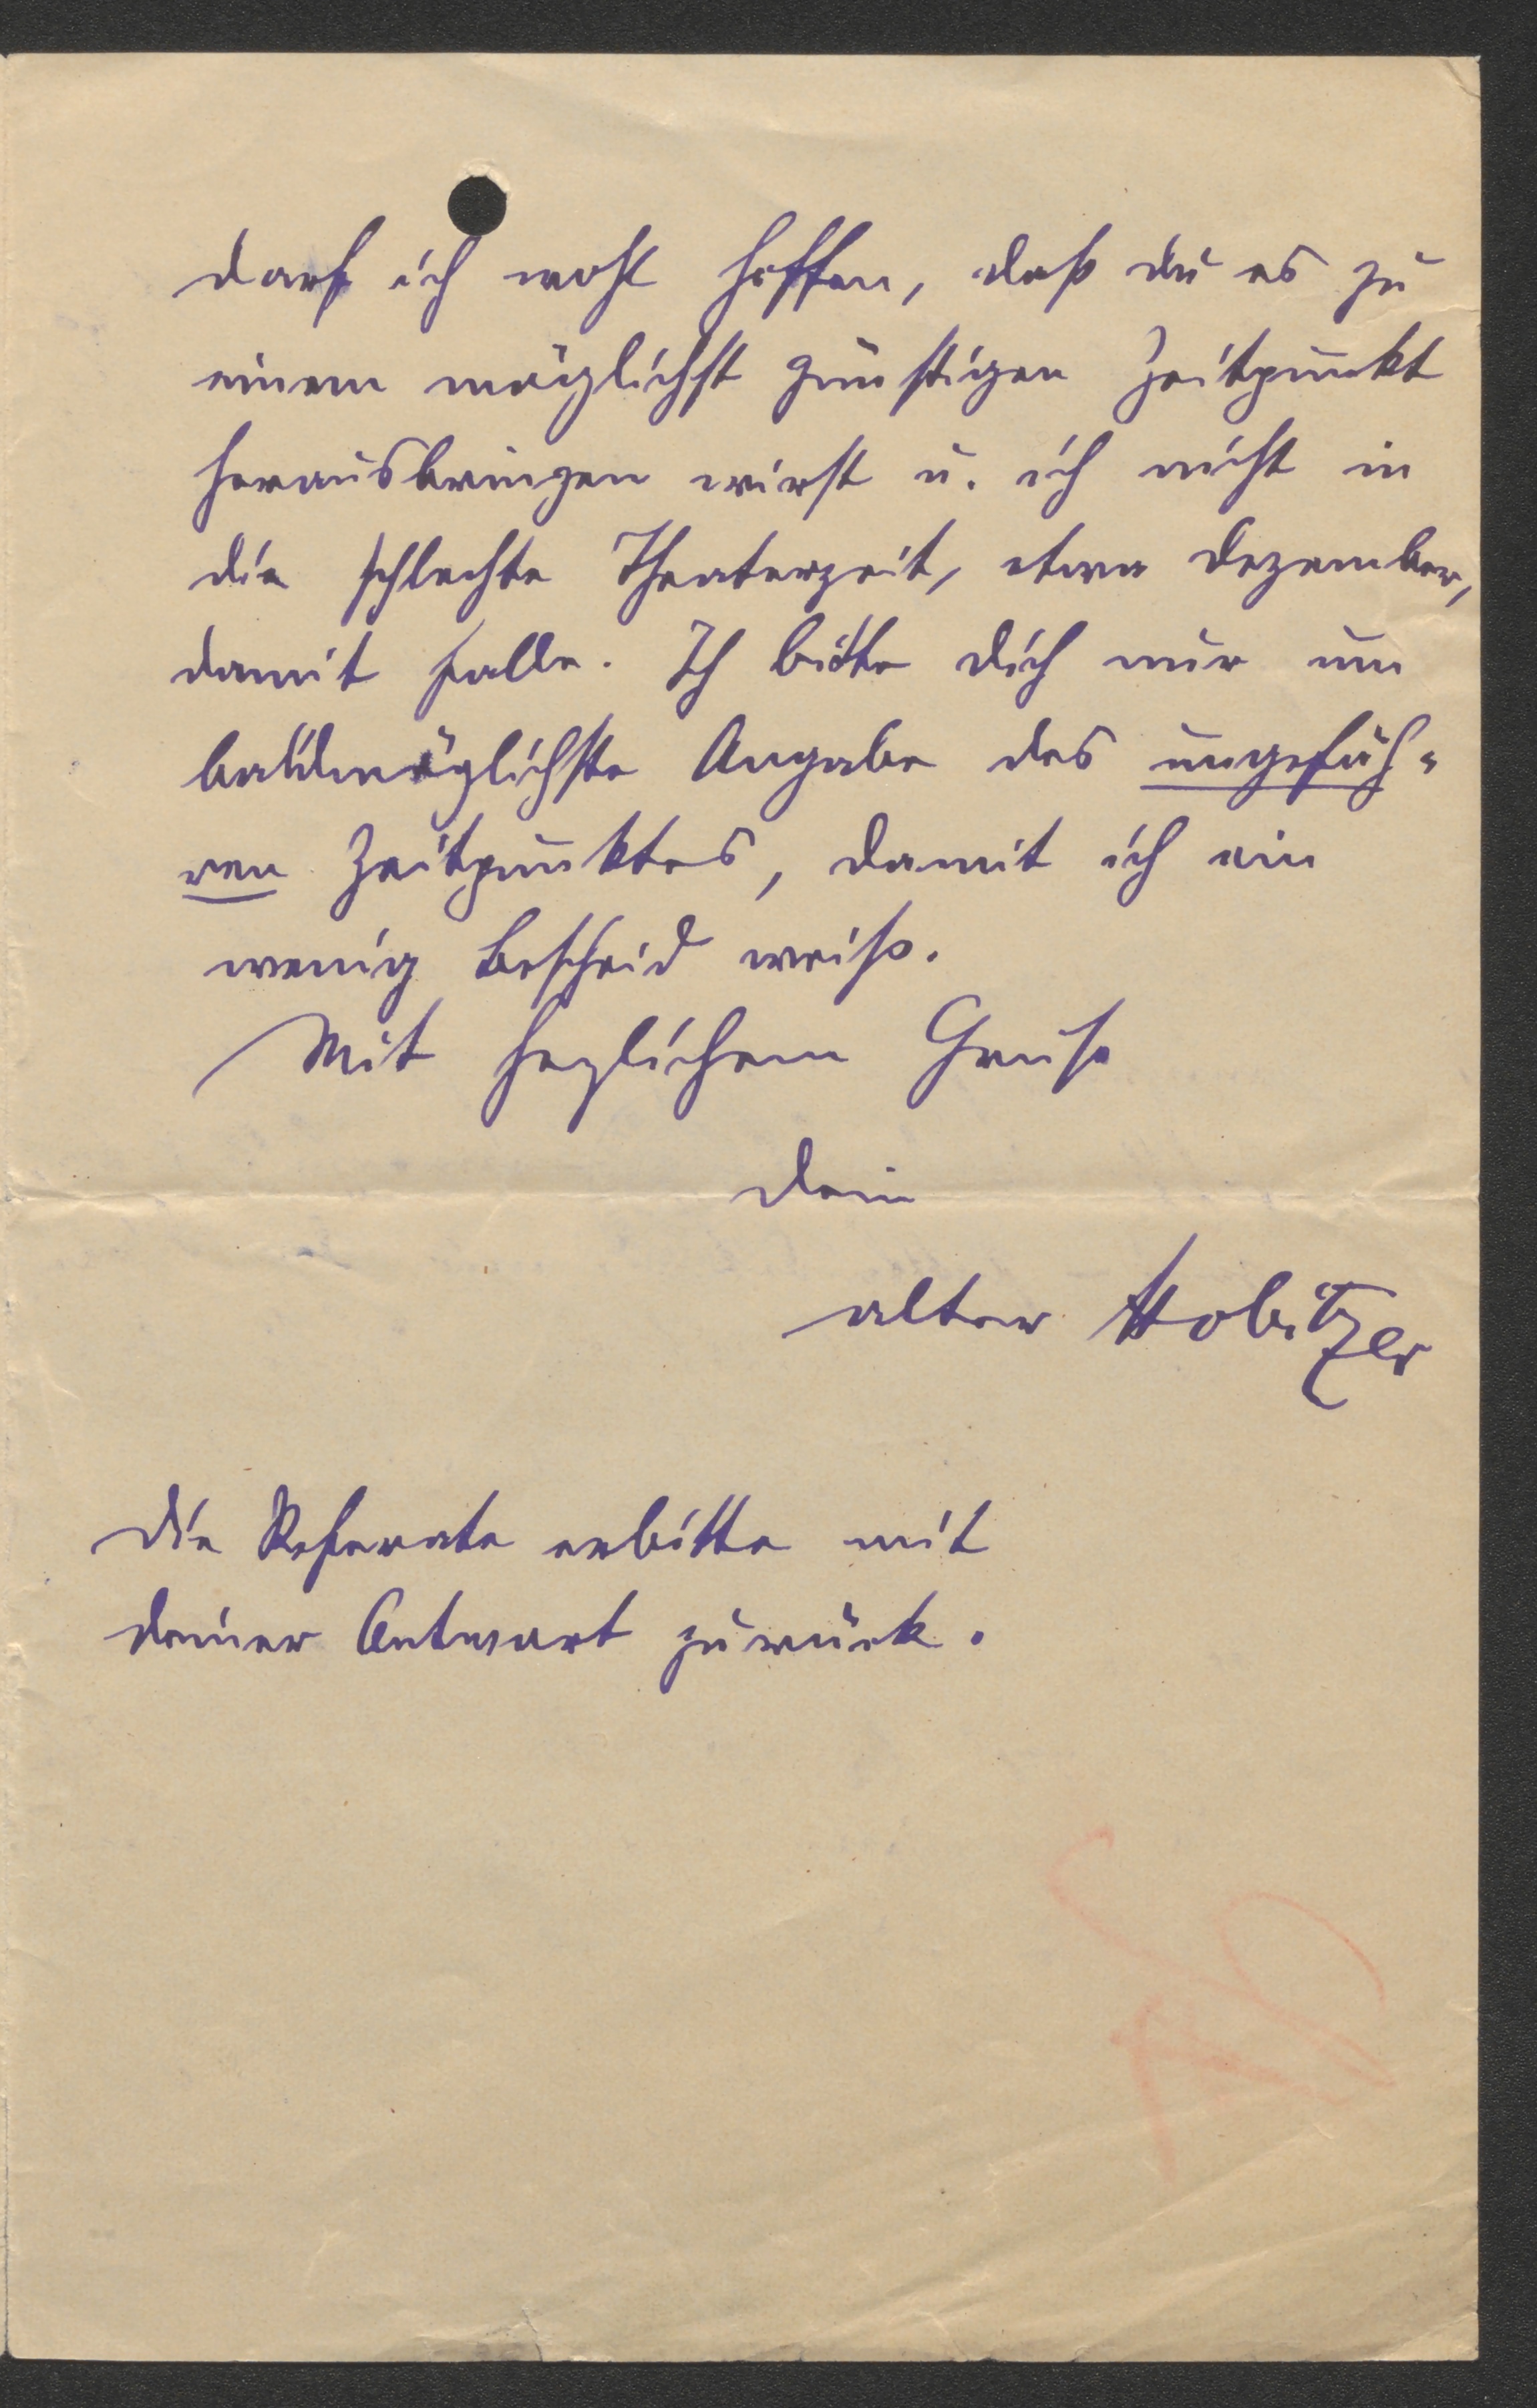 darf ich wohl hoffen, daß du es zu
einem möglichst günstigen Zeitpunkt
herausbringen wirst u. ich nicht in
die schlechte Theaterzeit, etwa Dezember,
damit falle. Ich bitte dich nur um
baldmöglichste Angabe des ungefäh-
ren Zeitpunktes, damit ich ein
wenig Bescheid weiß.
Mit herzlichem Gruße
Dein
alter Hobitzer
Die Referate erbitte mit
deiner Antwort zurück.